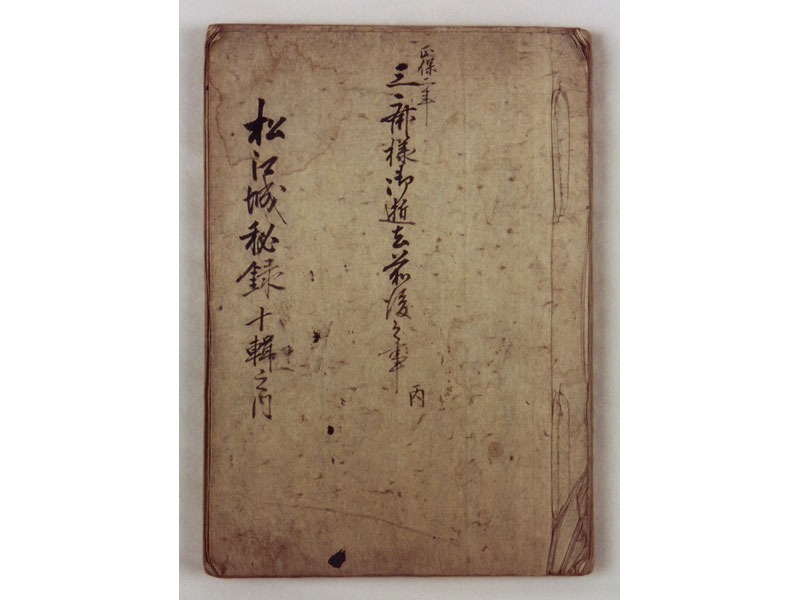 正保二年
三斎様御逝去前後之事
丙
松江城秘録 十輯之内